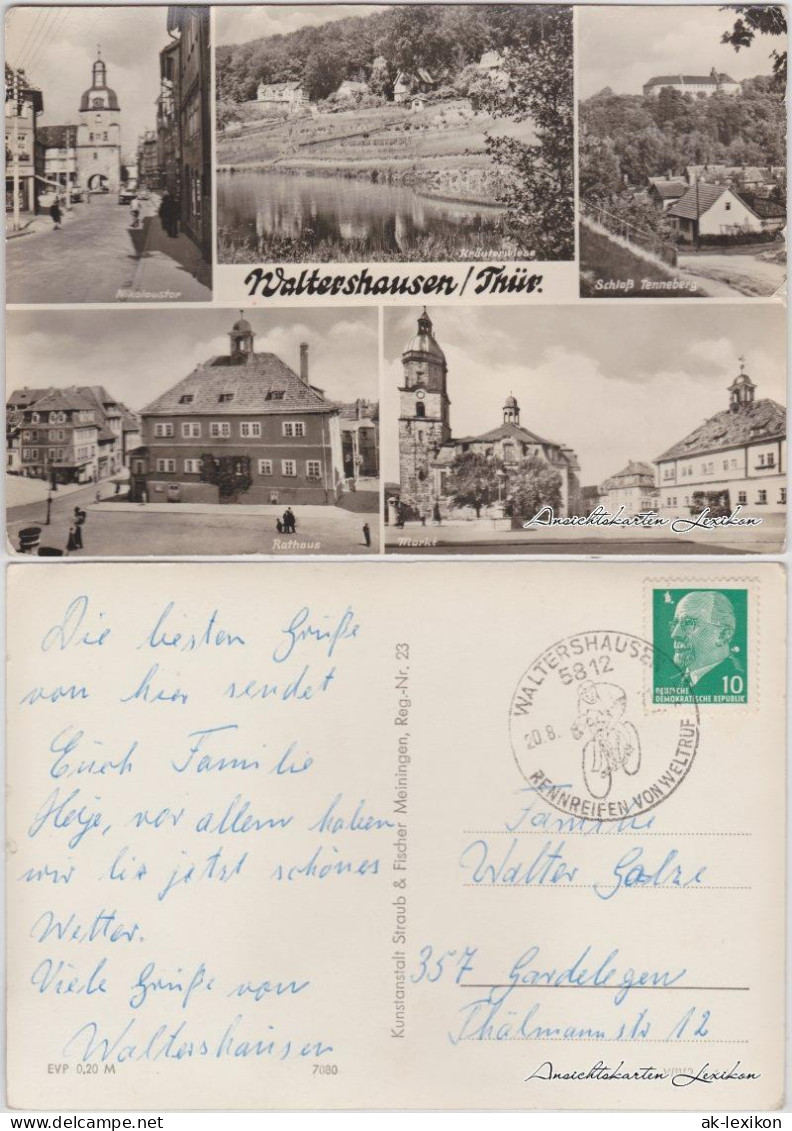 Nikolaustor
Kräuterwiese
Schloß Tenneberg
Waltershausen/Thür.
Rathaus
Markt
Ansichtskarten Lexikon
Die besten Grüße
von hier sendet
Euch Familie
Heje, vor allem haben
wir bis jetzt schönes
Wetter.
Viele Grüße von
Waltershausen
EVP 0,20 M
7080
Kunstanstalt Straub & Fischer Meiningen, Reg.-Nr. 23
WALTERSHAUSEN
5812
20.8.
RENNREIFEN VON WELTRUF
DEUTSCHE
DEMOKRATISCHE REPUBLIK
10
Familie
Walter Golze
357 Gardelegen
Thälmannstr 12
Ansichtskarten Lexikon
ak-lexikon.com